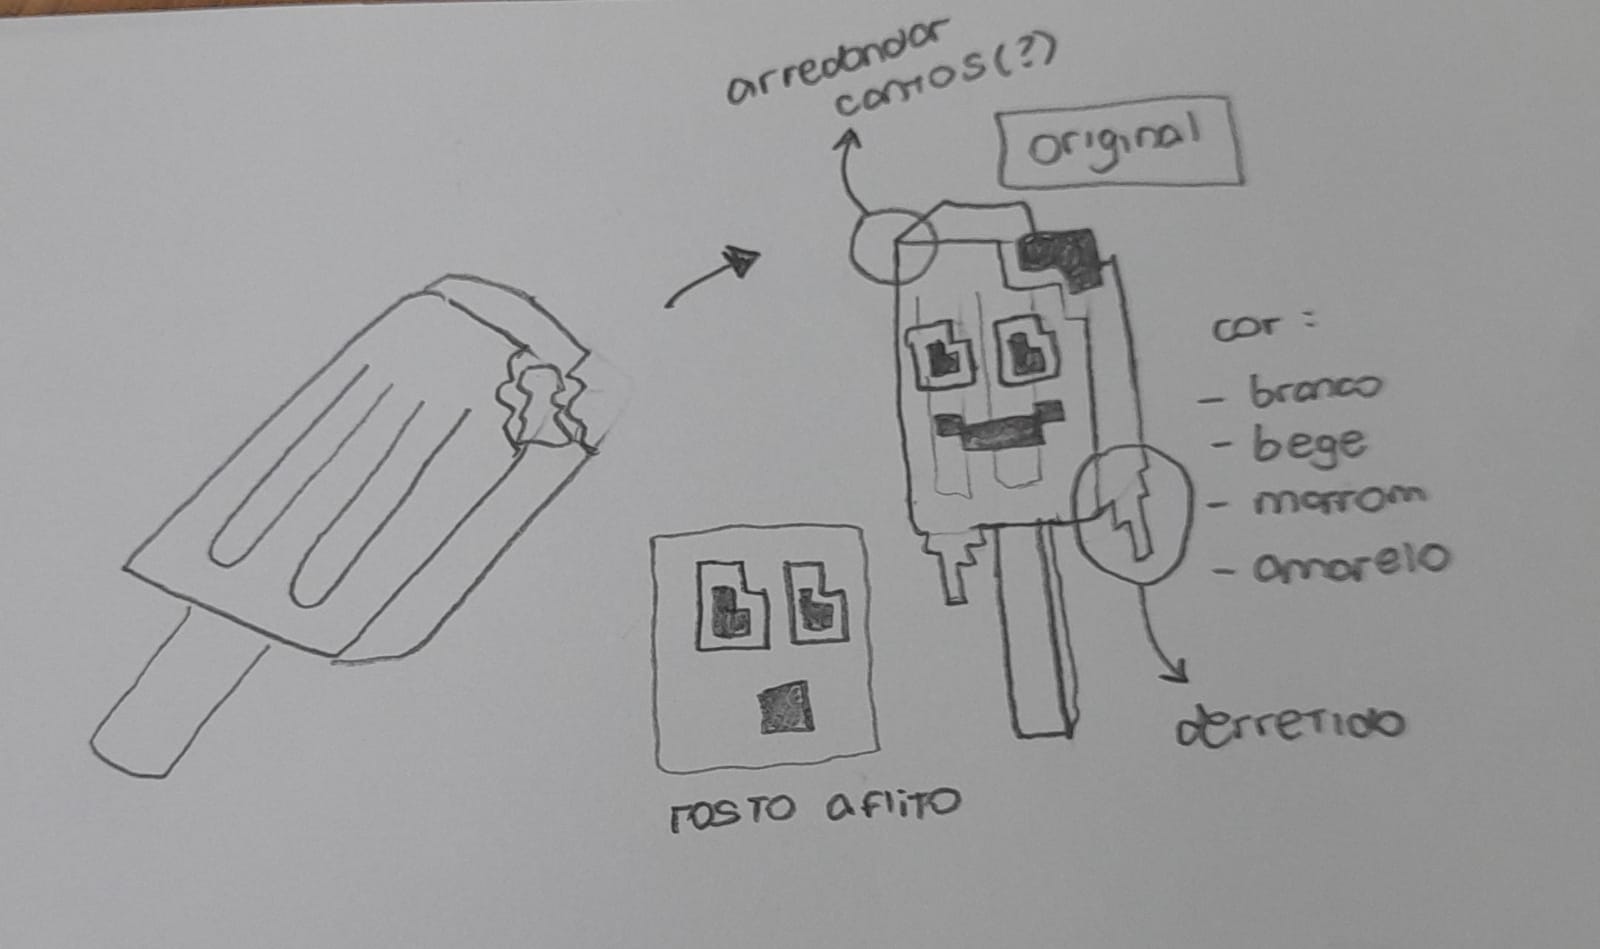 arredondar
cantos(?)
original
cor:
- branco
- bege
- marrom
- amarelo
derretido
rosto aflito